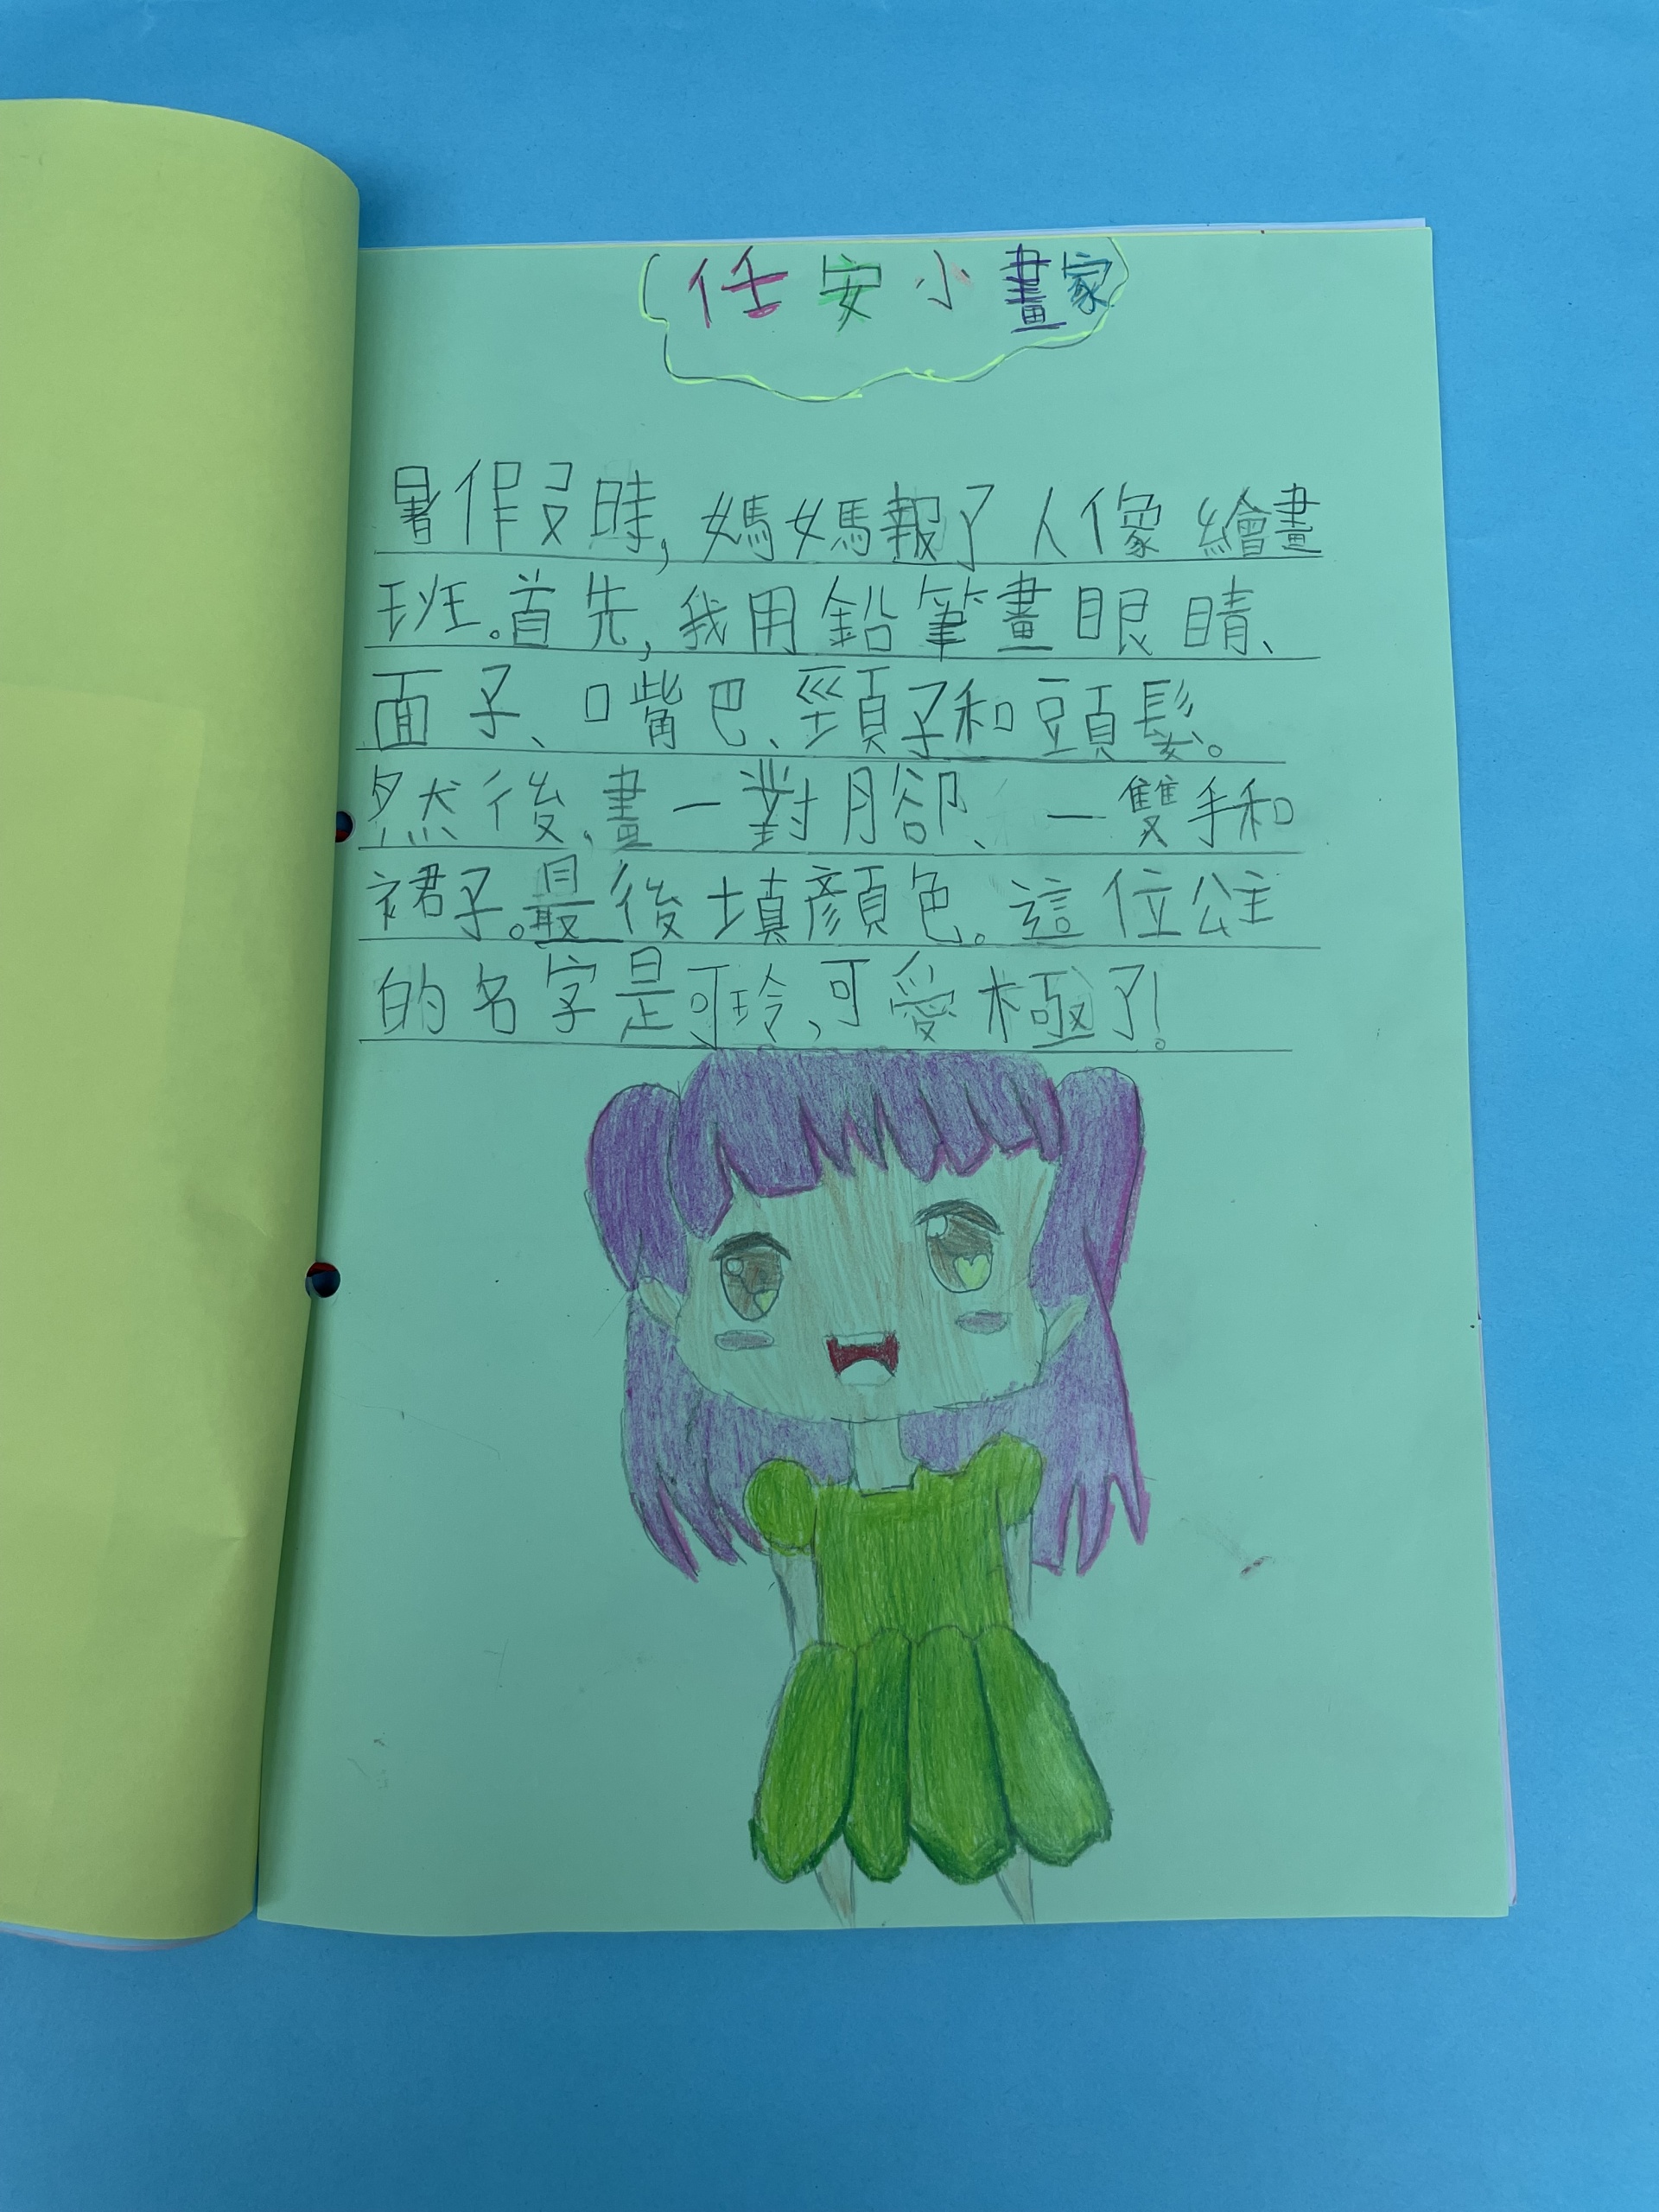 任安小畫家
暑假時,媽媽報了人像繪畫
班。首先,我用鉛筆畫眼睛、
面子、嘴巴、頸子和頭髮。
然後,畫一對腳、一雙手和
裙子。最後填顏色。這位公主
的名字是可玲,可愛極了!